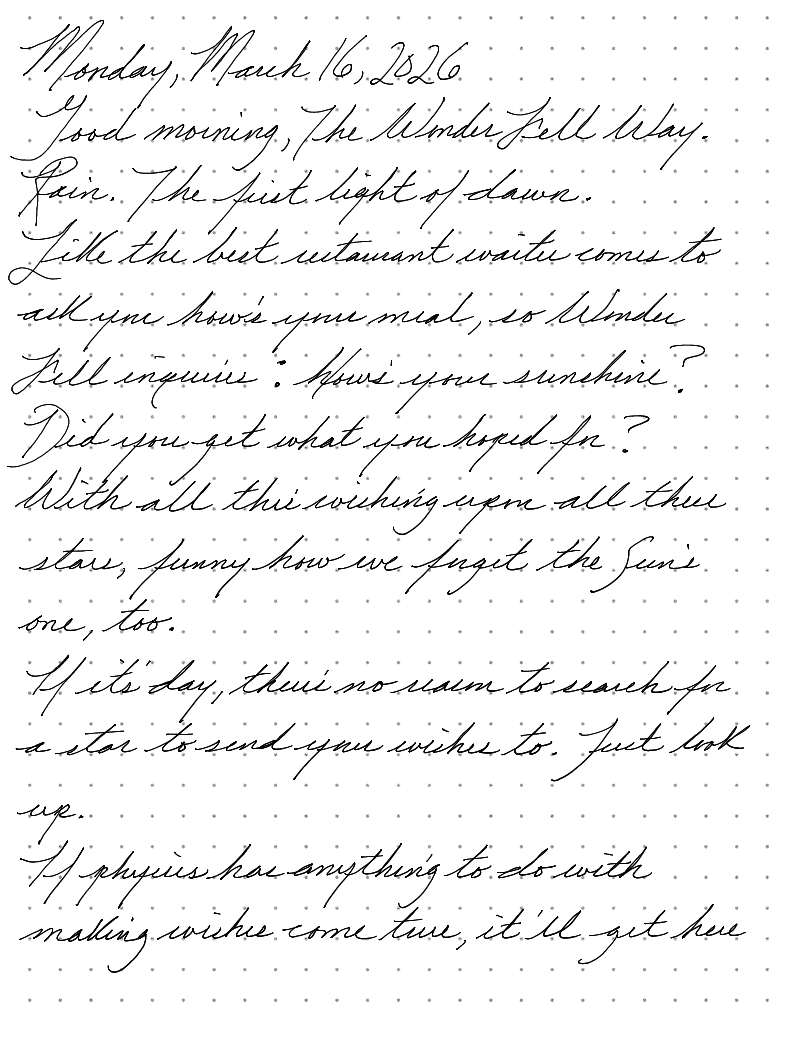 Monday, March 16, 2026
Good morning, The Wonder Fell Way.
Rain. The first light of dawn.
Like the best restaurant waiter comes to
ask you how's your meal, so Wonder
Fell inquires: How's your sunshine?
Did you get what you hoped for?
With all this wishing upon all these
stars, funny how we forget the Sun's
one, too.
If it's day, there's no reason to search for
a star to send your wishes to. Just look
up.
If physics has anything to do with
making wishes come ture, it'll get here